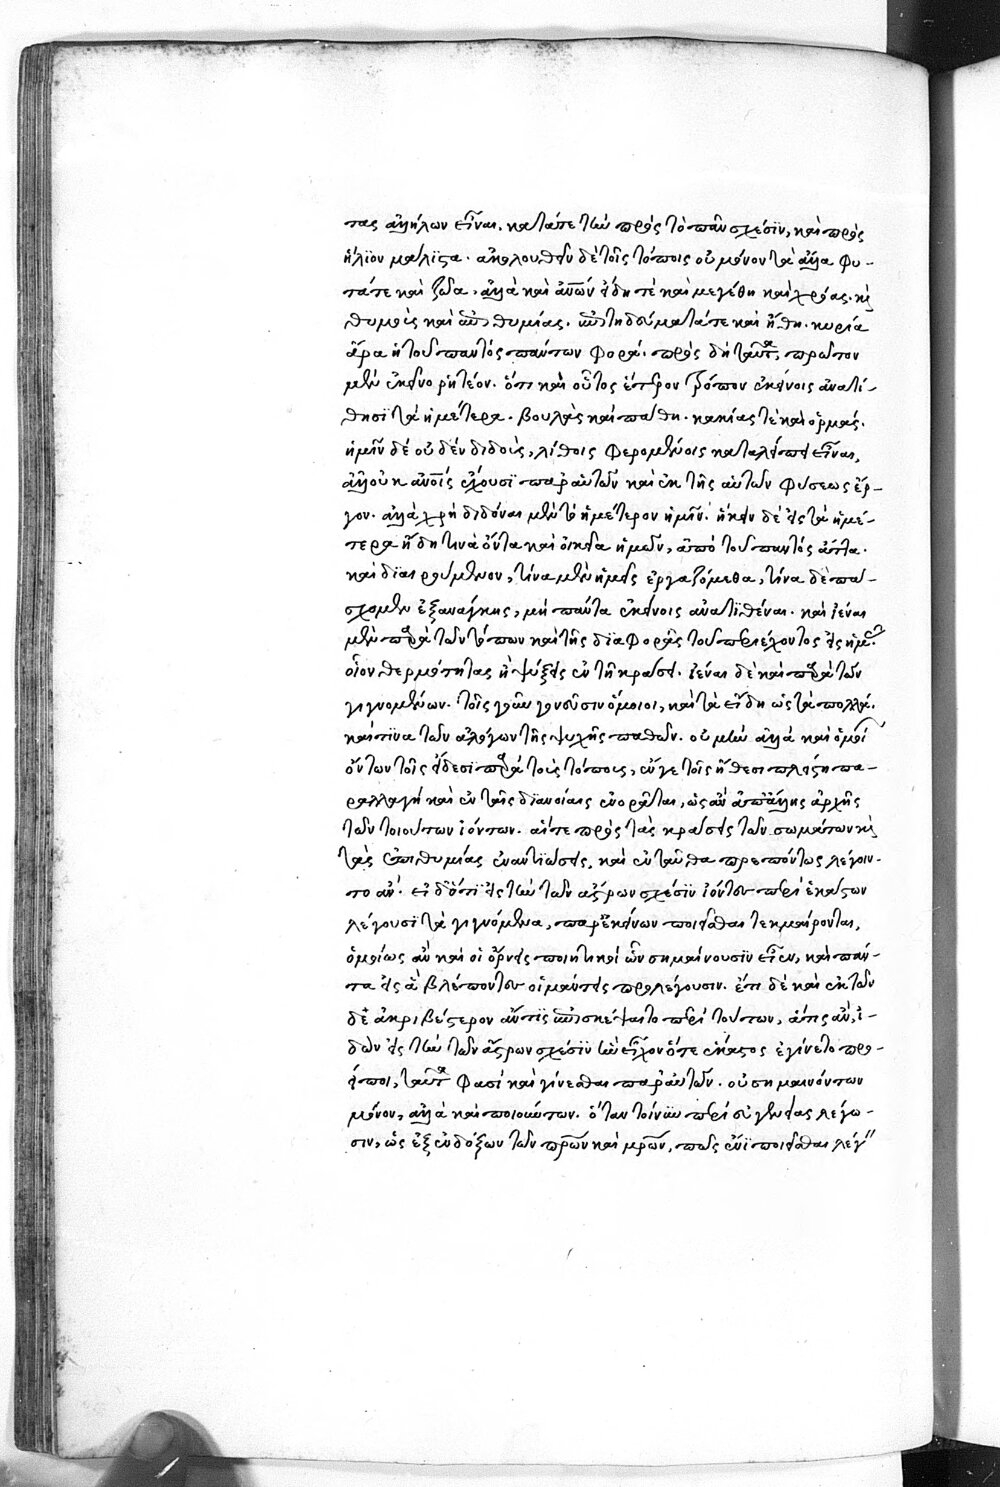 τας ἀλλήλων εἶναι. κατά τε τὴν πρὸς τὸ πᾶν σχέσϊν, καὶ πρὸς
ἥλϊον μάλϊστα. ἀκολουθεῖν δὲ τοῖς τόποις οὐ μόνον τὰ ἄλλα φυ-
τά τε καὶ ζῶα, ἀλλὰ καὶ ἀνθρώπων εἴδη τὲ καὶ μεγέθη καὶ χρόας. καὶ
θυμοὺς καὶ ἐπιθυμίας. ἐπιτηδεύματά τε καὶ ἤθη. κυρία
ἄρα ἡ τοῦ παντὸς πάντων φορά. πρὸς δὴ ταῦτα, πρῶτον
μὲν ἐκεῖνο ῥητέον. ὅτι καὶ οὗτος ἕτερον τρόπον ἐκείνοις ἀνατί-
θησϊ τὰ ἡμέτερα. βουλὰς καὶ πάθη. κακίας τὲ καὶ ὁρμάς.
ἡμῖν δὲ οὐδὲν διδοὺς, λίθοις φερομένοις καταλείπει εἶναι,
ἀλλ' οὐκ ἀνθρώποις ἔχουσϊ παρ' αὑτῶν καὶ ἐκ τῆς αὑτῶν φύσεως ἔρ-
γον. ἀλλὰ χρὴ διδόναι μὲν τὸ ἡμέτερον ἡμῖν. ἥκειν δὲ εἰς τὰ ἡμέ-
τερα ἤδη τινὰ ὄντα καὶ οἰκεῖα ἡμῶν, ἀπὸ τοῦ παντὸς ἄττα.
καὶ διαιρούμενον, τίνα μὲν ἡμεῖς ἐργαζόμεθα, τίνα δὲ πά-
σχομεν ἐξ ἀνάγκης, μὴ πάντα ἐκείνοις ἀνατϊθέναι. καὶ ἰέναι
μὲν παρὰ τῶν τόπων καὶ τῆς δϊαφορᾶς τοῦ περιέχοντος εἰς ἡμᾶς.
οἷον θερμότητας ἢ ψύξεις ἐν τῇ κράσει. ἰέναι δὲ καὶ παρὰ τῶν
γιγνομένων. τοῖς γοῦν γονεῦσιν ὅμοιοι, καὶ τὰ εἴδη ὡς τὰ πολλά.
καί τινα τῶν ἀλόγων τῆς ψυχῆς παθῶν. οὐ μὲν ἀλλὰ καὶ ὁμοί
ὄντων τοῖς εἴδεσϊ παρὰ τοὺς τόπους, ἔν γε τοῖς ἤθεσι πλείστη πα-
ραλλαγὴ καὶ ἐν ταῖς δϊανοίαις ἐνορᾶται, ὡς ἂν ἀπ' ἄλλης ἀρχῆς
τῶν τοιούτων ἰόντων. αἵ τε πρὸς τὰς κράσεις τῶν σωμάτων καὶ
τὰς ἐπιθυμίας ἐναντϊώσεις, καὶ ἐνταῦθα πρεπόντως λέγοιν-
το ἄν. εἰ δ' ὅτϊ εἰς τὴν τῶν ἄστρων σχέσϊν ἰόντες περὶ ἑκάστων
λέγουσϊ τὰ γιγνόμενα, παρ' ἐκείνων ποιεῖσθαι τεκμαίρονται,
ὁμοίως ἂν καὶ οἱ ὄρνεις ποιητικοὶ ὧν σημαίνουσϊν εἶεν, καὶ πάν-
τα εἰς ἃ βλέποντες οἱ μάντεις προλέγουσιν. ἔτι δὲ καὶ ἐκ τῶν
δε ἀκριβέστερον ἄν τις ἐπισκέψαιτο περὶ τούτων. ἅ τις ἂν, ἰ-
δὼν εἰς τὴν τῶν ἄστρων σχέσϊν ἣν εἶχον ὅτε ἕκαστος ἐγίνετο προ-
είποι, ταῦτα φασὶ καὶ γίνεσθαι παρ' αὐτῶν. οὐ σημαινόντων
μόνον, ἀλλὰ καὶ ποιούντων. ὅταν τοίνυν περὶ εὐγενείας λέγω-
σιν, ὡς ἐξ ἐνδόξων τῶν πατέρων καὶ μητέρων, πῶς ἔνϊ ποιεῖσθαι λέγ